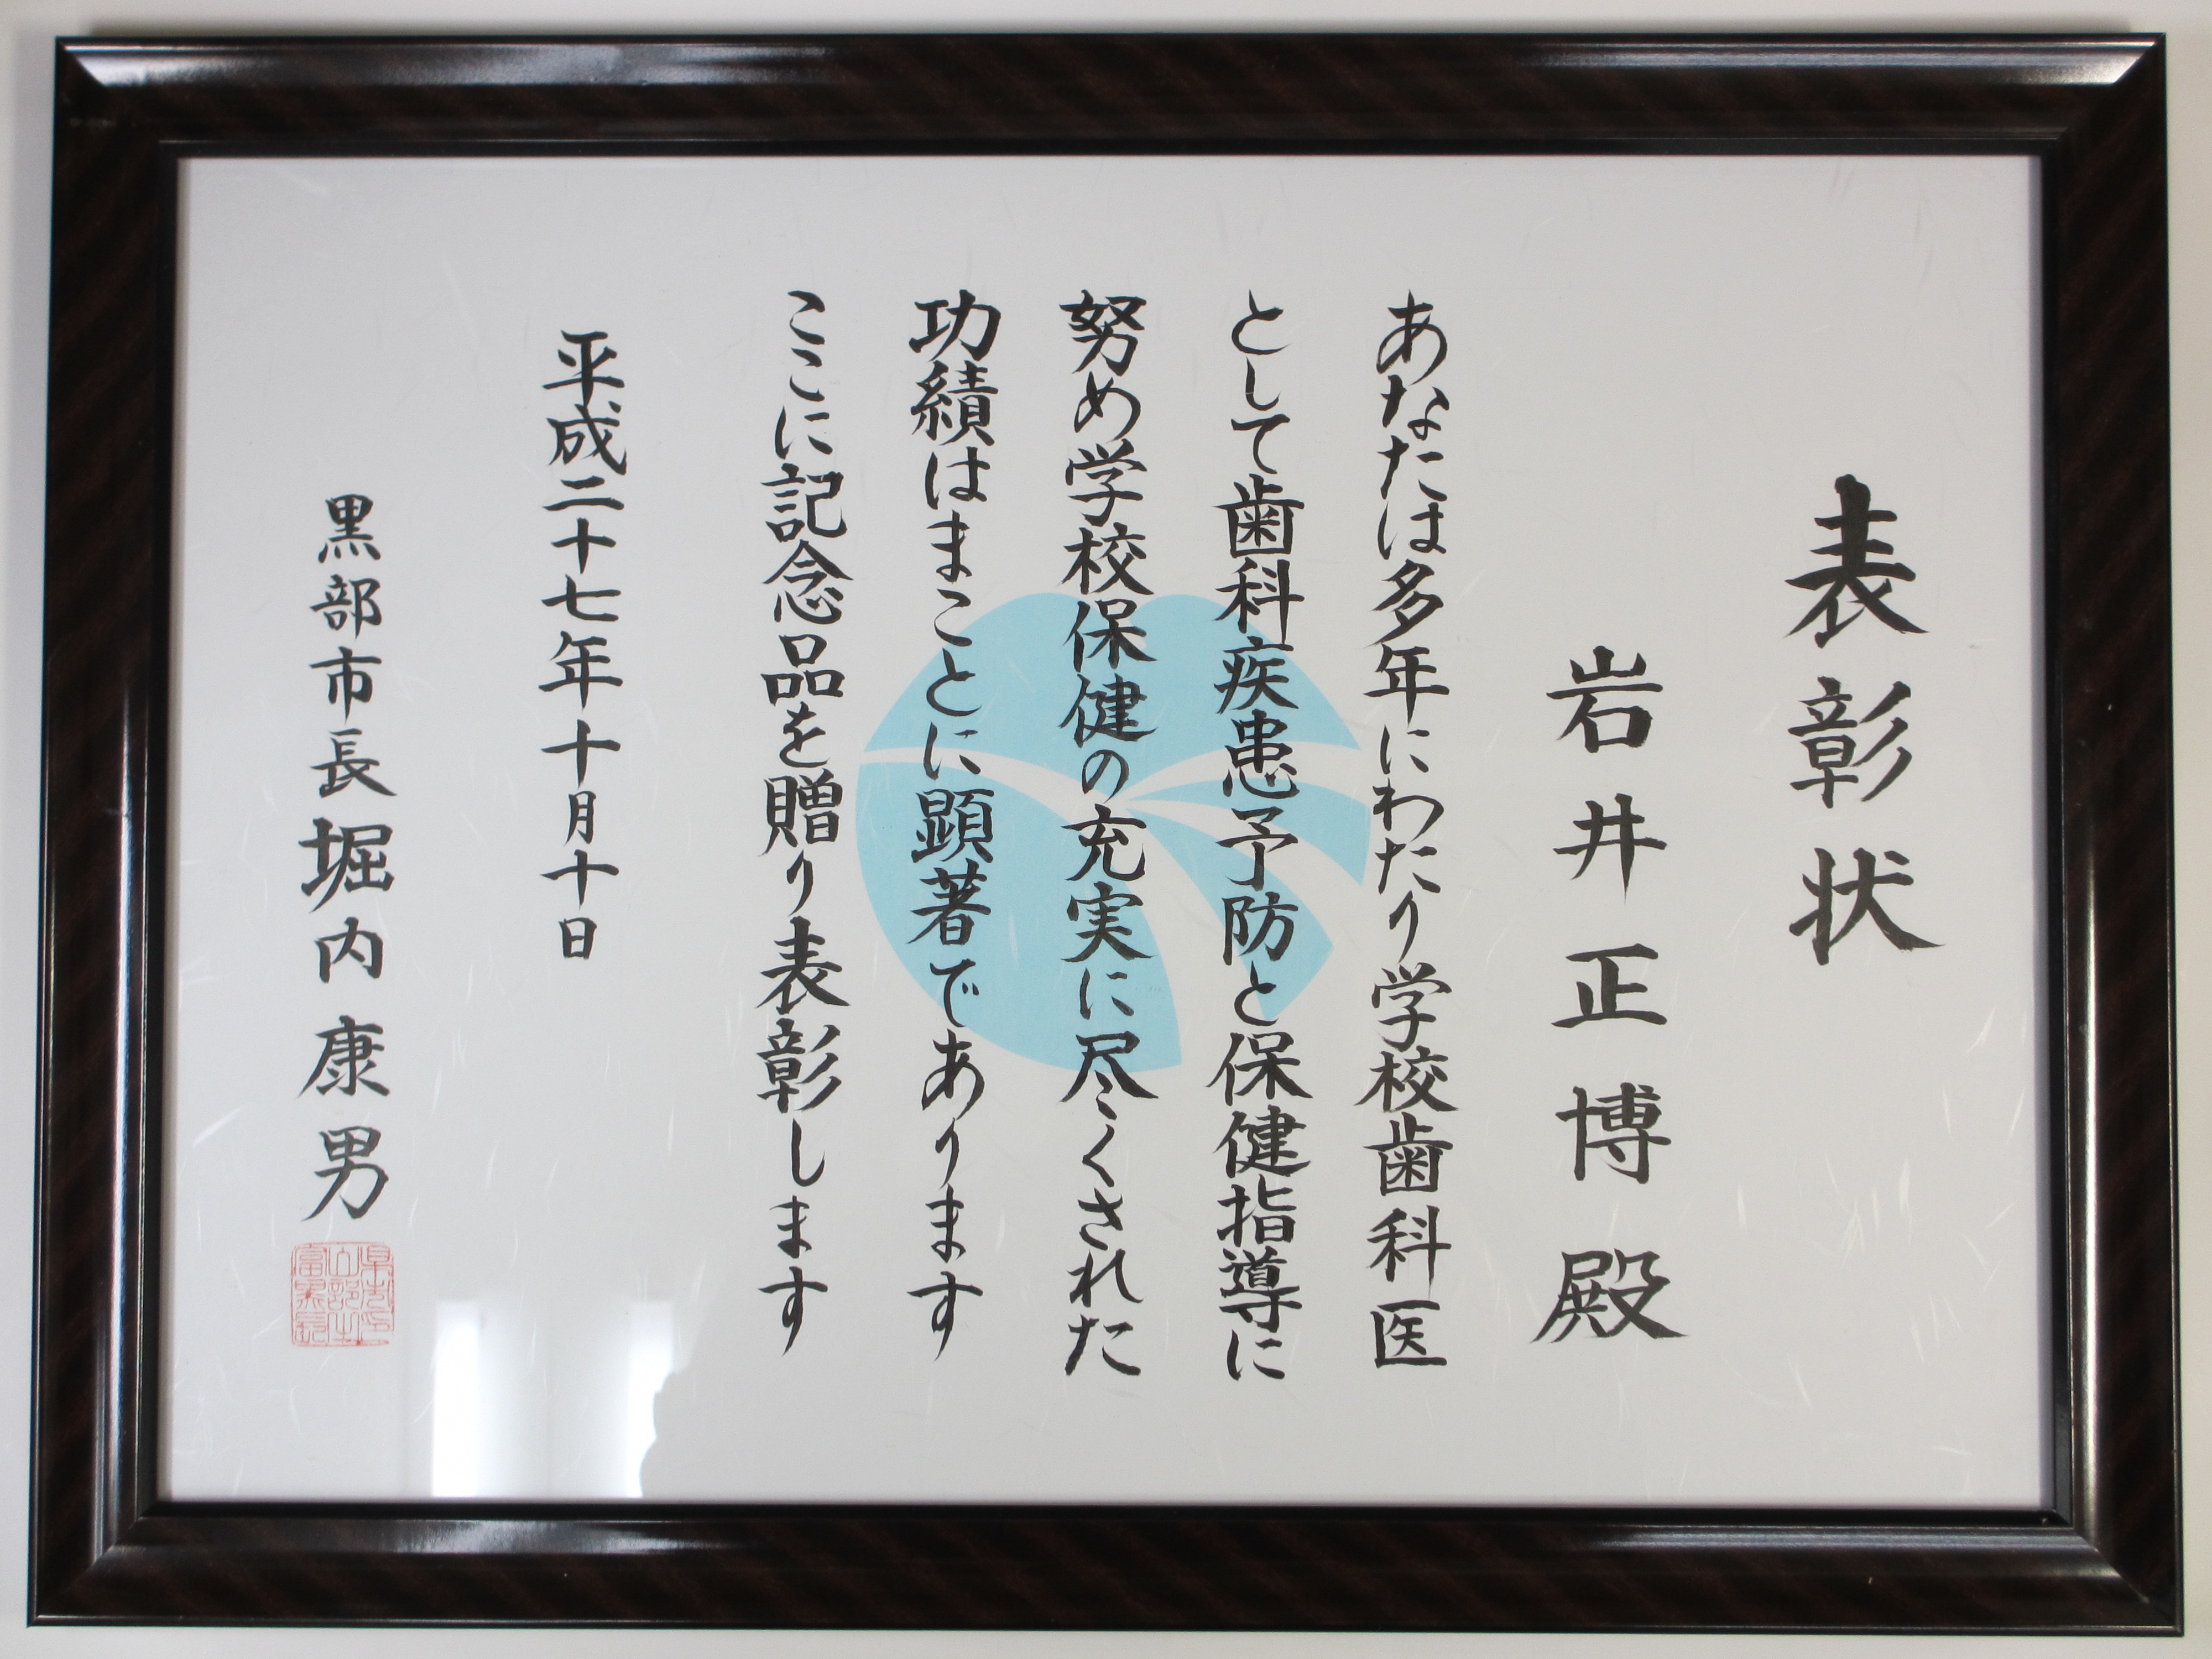 表彰状
岩井正博殿
あなたは多年にわたり学校歯科医
として歯科疾患予防と保健指導に
努め学校保健の充実に尽くされた
功績はまことに顕著であります
ここに記念品を贈り表彰します
平成二十七年十月十日
黒部市長堀内康男